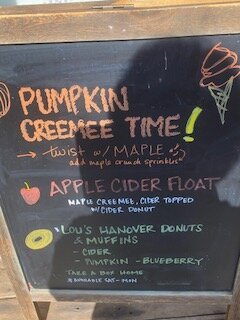 PUMPKIN
CREEMEE TIME!
→ twist w/ MAPLE
add maple crunch sprinkles
APPLE CIDER FLOAT
MAPLE CREEMEE, CIDER TOPPED
W/ CIDER DONUT
LOU'S HANOVER DONUTS
& MUFFINS
- CIDER
- PUMPKIN - BLUEBERRY
TAKE A BOX HOME
AVAILABLE SAT - MON